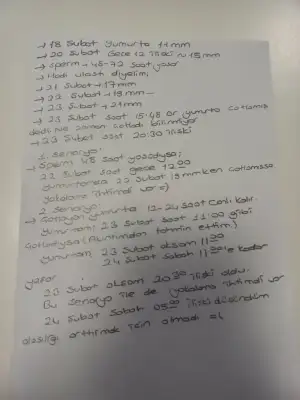 → 18 Subat Yumurta 11mm
→ 20 Subat Gece 12 ilişki ~ 15mm
→ Sperm → 48-72 Saat yasar
→ Hadi ulastı diyelim;
→ 21 Subat → 17mm
→ 22 Subat → 19mm —
→ 23 Subat → 21mm
→ 23 Subat saat 15:48 dr yumurta catlamıs
dedi ne zaman catladı bilinmiyor
→ 23 Subat saat 20:30 ilişki
1. Senaryo;
→ Sperm 48 saat yasadıysa;
22 Subat saat gece 12:00
yumurtamda 22 Subat 19mm ken catlamıssa
yakalama ihtimali var =)
2. Senaryo yumurta 12-24 saat canlı kalır.
→ yumurtam; 23 Subat saat 11:00 gibi
catladıysa (Akıntımdan tahmin ettim)
yumurtam 23 Subat aksam 11:00
24 Subat Sabah 11:00'e kadar
yasar
23 Subat aksam 20:30 ilişki oldu.
Bu senaryo ile de yakalama ihtimali var
24 Subat Sabah 05:00 ilişki düsündüm
olasılıgı arttırmak icin olmadı =(